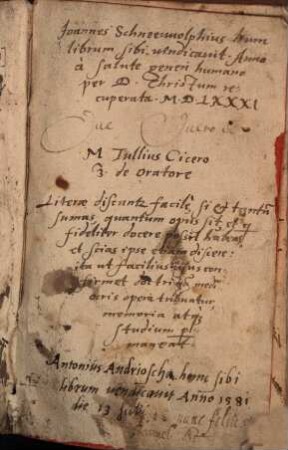 Joannes Schneewolphius hunc
librum sibi vendicavit Anno
à salute generi humano
per D. Christum re
cuperata M.D.LXXXI
M Tullius Cicero
3. de Oratore
Literæ discuntur facile, si & tantũ
sumas, quantum opus sit, et q
fideliter docere possit habeas
et scias ipse etiam discere:
ita ut facilius usus con
firmet doctrinã, me
opera tribuatur,
memoria atq3
studium p
maneat.
Antonius Andrioscha hunc sibi
librum vendicavit Anno 1581
die 13